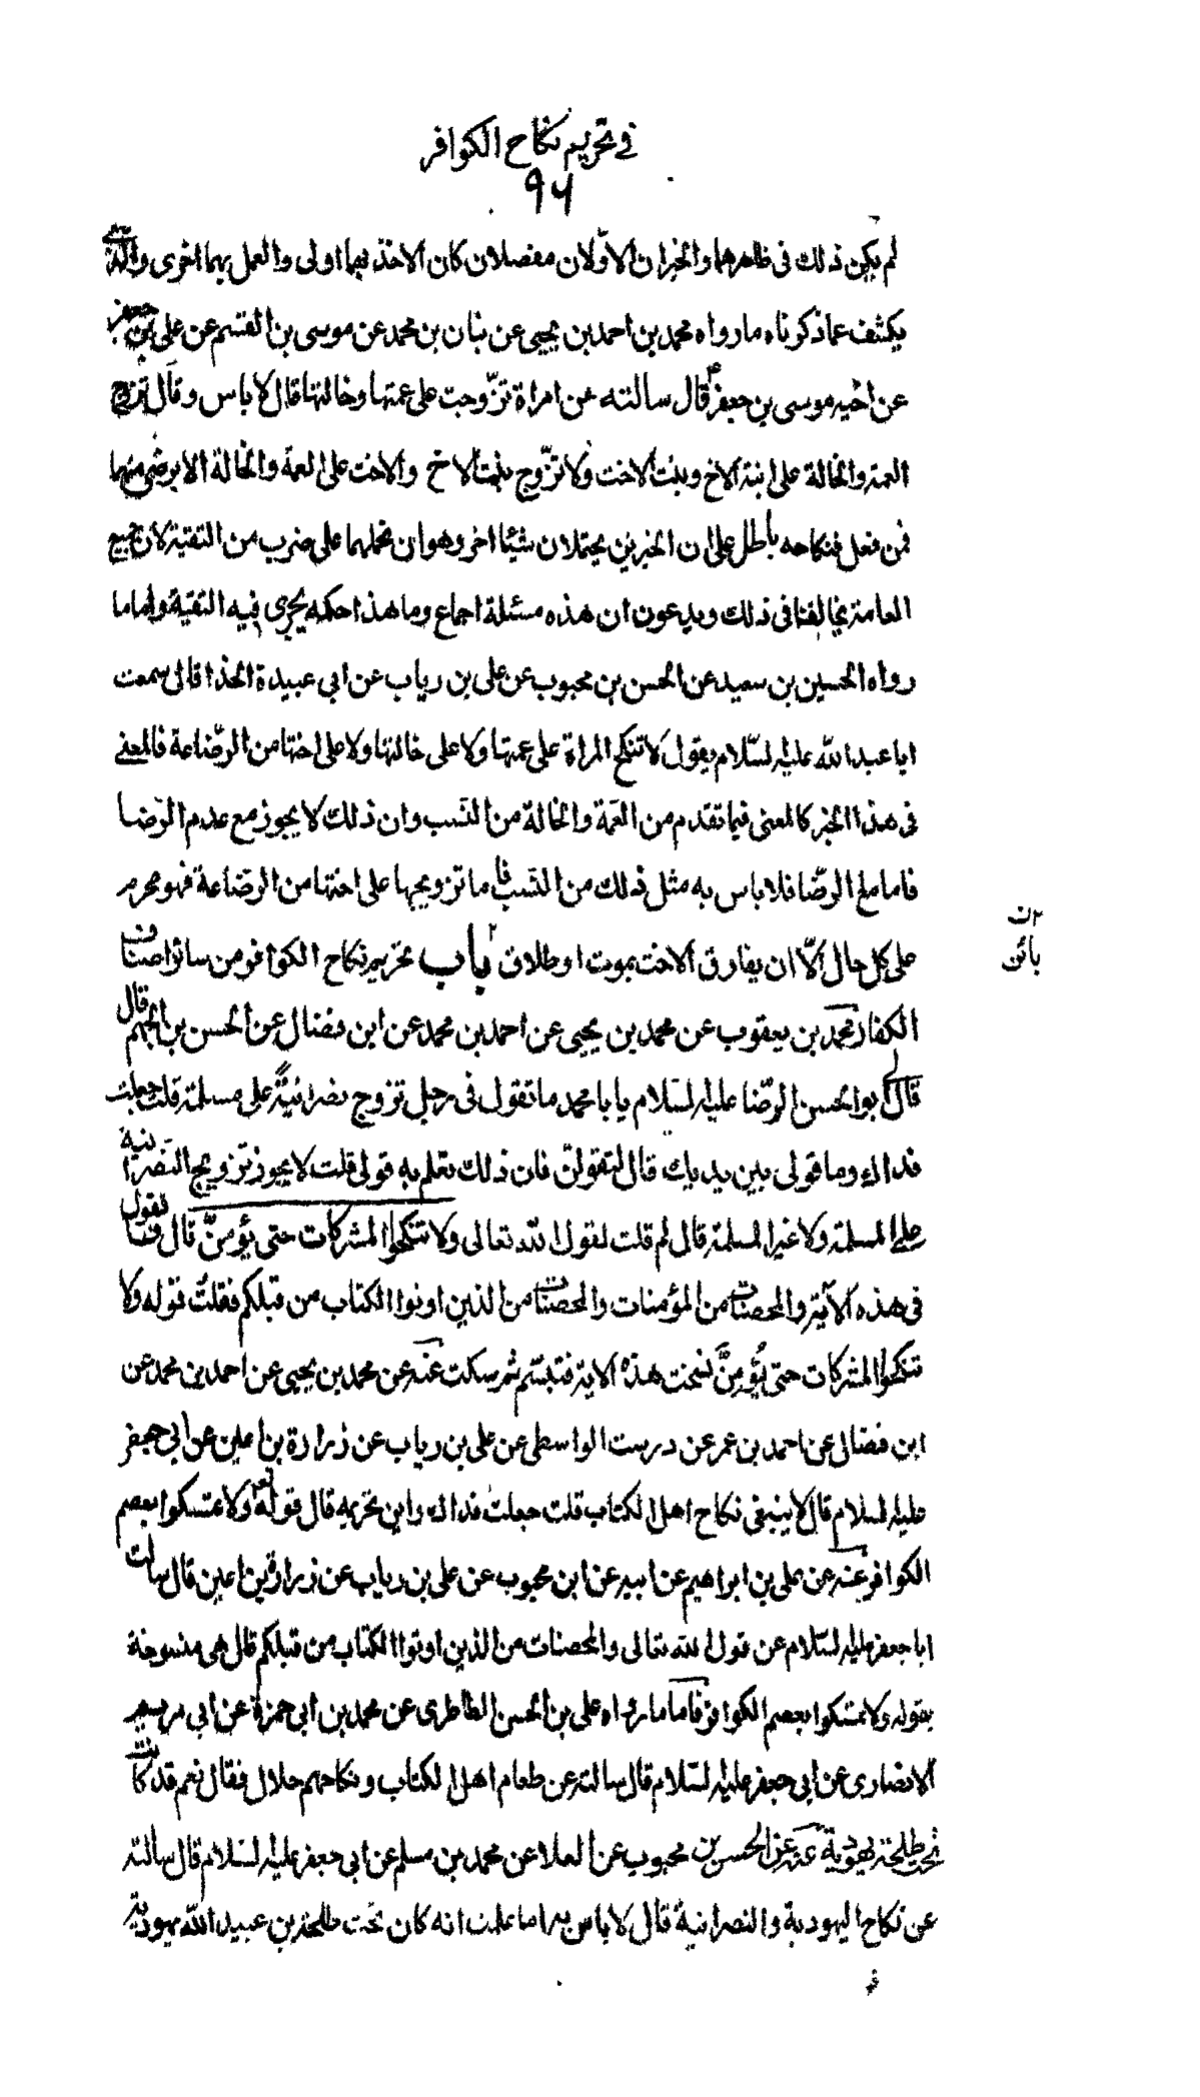 في تحريم نكاح الكوافر
٩٦
لم يكن ذلك فى ظاهرهما والخبران الاوّلان مفصلان كان الاخذ بهما اولى والعمل بهما احرى والذى
يكشف عما ذكرناه ما رواه محمد بن احمد بن يحيى عن بنان بن محمد عن موسى بن القسم عن على بن جعفر
عن اخيه موسى بن جعفر ع قال سالته عن امراة تزّوجت على عمتها وخالتها قال لا باس وقال تزوج
العمة والخالة على ابنة الاخ وبنت الاخت ولا تزّوج بنت الاخ والاخت على العمة والخالة الا برضى منهما
فمن فعل فنكاحه باطل على ان الخبرين يحتملان شيئا اخر وهو ان نحملهما على ضرب من التقية لان جميع
العامة يخالفنا فى ذلك ويدعون ان هذه مسئلة اجماع وما هذا حكمه يجرى فيه التقية واما ما
رواه الحسين بن سعيد عن الحسن بن محبوب عن على بن رياب عن ابى عبيدة الحذا قال سمعت
ابا عبد الله عليه السّلام يقول لا تنكح المراة على عمتها ولا على خالتها ولا على اختها من الرضّاعة فالمعنى
فى هذا الخبر كالمعنى فيما تقدم من العمّة والخالة من النّسب وان ذلك لا يجوز مع عدم الرّضا
فاما مع الرضّا فلا باس به مثل ذلك من النّسب فاما تزويجها على اختها من الرضّاعة فهو محرم
على كل حال الّا ان يفارق الاخت بموت او طلاق ٢ باب تحريم نكاح الكوافر من ساير اصناف
٢ ن
بائن
الكفار محمد بن يعقوب عن محمد بن يحيى عن احمد بن محمد عن ابن فضال عن الحسن بن الجهم قال
قال لى ابو الحسن الرضّا عليه السّلام يا با محمد ما تقول فى رجل تزوج نصرانيّةً على مسلمة قلت جعلت
فداك وما قولى بين يديك قال لتقولنّ فان ذلك تعلم به قولى قلت لا يجوز تزويج النّصرانية
على المسلمة ولا غير المسلمة قال لم قلت لقول الله تعالى ولا تنكحوا المشركات حتى يؤمنّ قال فما تقول
فى هذه الآية والمحصنات من المؤمنات والمحصنات من الذين اوتوا الكتاب من قبلكم فقلت قوله ولا
تنكحوا المشركات حتى يُؤمِنَّ نسخت هذه الاية فتبسّم ثم سكت عنه عن محمد بن يحيى عن احمد بن محمد عن
ابن فضال عن احمد بن عمر عن درست الواسطى عن على بن رياب عن زرارة بن اعين عن ابى جعفر
عليه السلام قال لا ينبغى نكاح اهل الكتاب قلت جعلت فداك واين تحريمه قال قوله تع ولا تمسكوا بعصم
الكوافر عنه عن على بن ابراهيم عن ابيه عن ابن محبوب عن على بن رياب عن زرارة بن اعين قال سالت
ابا جعفر عليه السّلام عن قول الله تعالى والمحصنات من الذين اوتوا الكتاب من قبلكم قال هى منسوخة
بقوله ولا تمسكوا بعصم الكوافر فاما ما رواه على بن الحسن الطاطرى عن محمد بن ابى حمزة عن ابى مريم
الانصارى عن ابى جعفر عليه السّلام قال سالته عن طعام اهل الكتاب ونكاحهم حلال فقال نعم قد كانت
تحت طلحة يهودية عنه عن الحسن بن محبوب عن العلا عن محمد بن مسلم عن ابى جعفر عليه السّلام قال سالته
عن نكاح اليهودية والنصرانية قال لا باس به اما علمت انه كان تحت طلحة بن عبيد الله يهودية